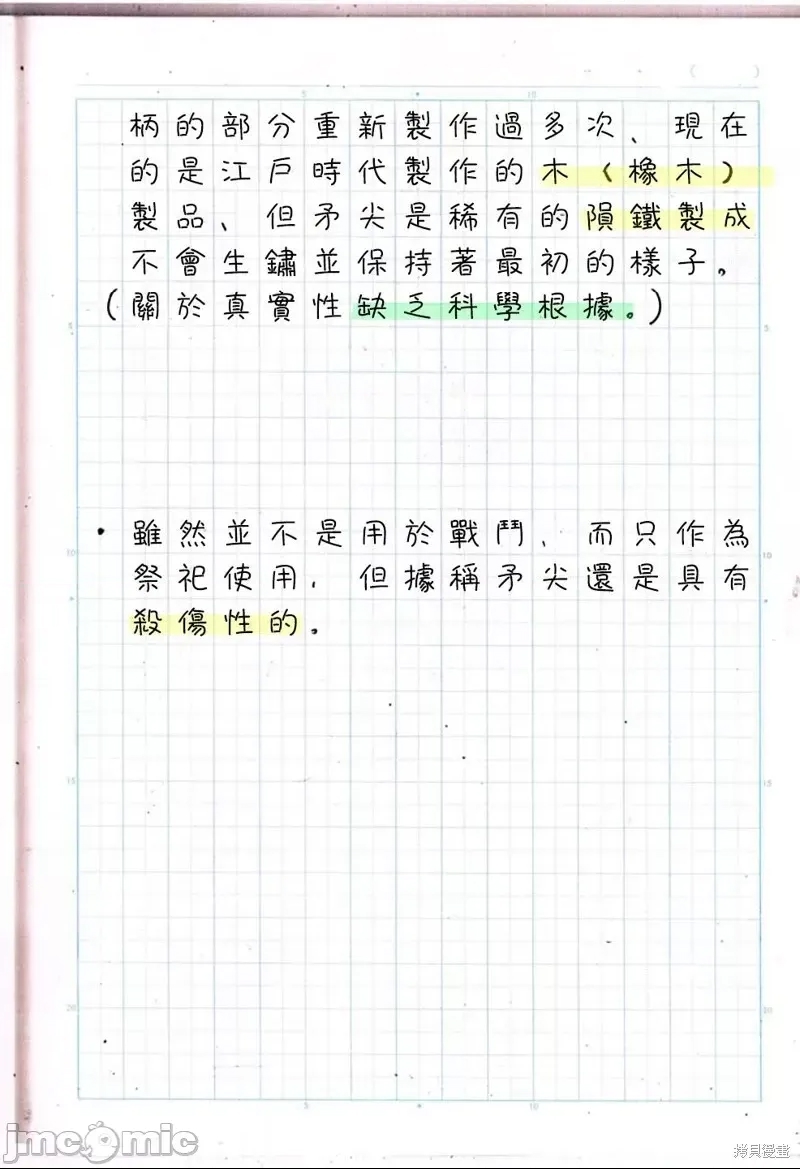 柄的部分重新製作過多次、現在
的是江戶時代製作的木（橡木）
製品、但矛尖是稀有的隕鐵製成
不會生鏽並保持著最初的樣子。
（關於真實性缺乏科學根據。）
・雖然並不是用於戰鬥、而只作為
祭祀使用，但據稱矛尖還是具有
殺傷性的。
jmcomic
拷貝漫畫